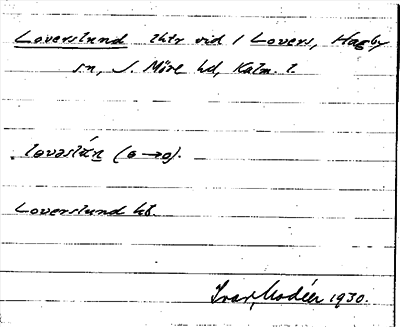 Loverslund lhtr vid 1 Lovers, Hagby
sn, S. Möre hd, Kalm. l.
(o→o).
Loverslund kb.
Ivar Modéer 1930.